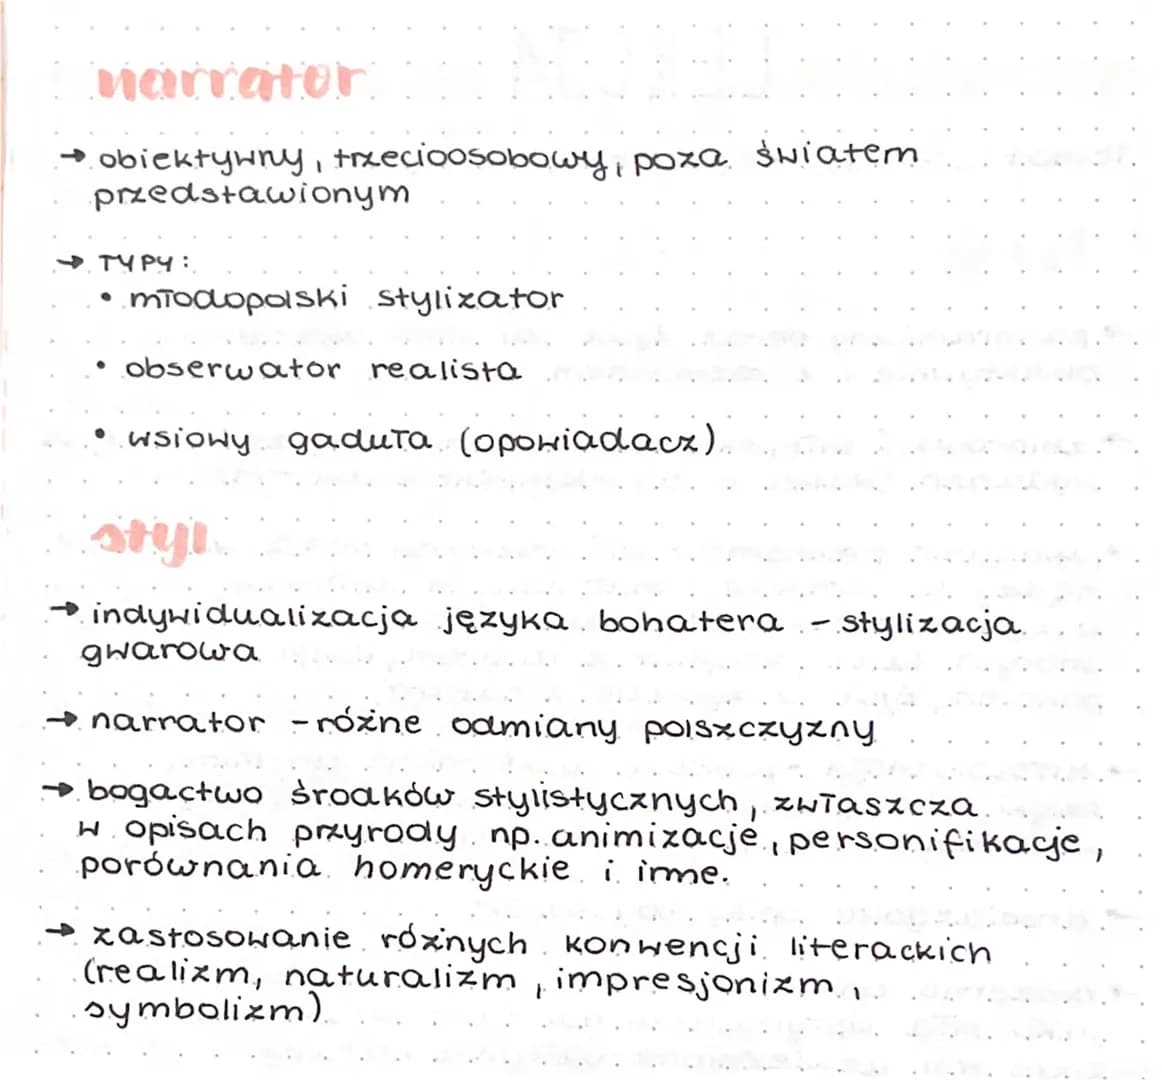 narrator
→ obiektywny, trzecioosobowy, poza światem
przedstawionym
→ TYPY:
• młodopolski stylizator
• obserwator realista
• wsiowy gaduła (opowiadacz)
styl
→ indywidualizacja języka bohatera - stylizacja
gwarowa
→ narrator - różne odmiany polszczyzny
→ bogactwo środków stylistycznych, zwłaszcza
w opisach przyrody np. animizacje, personifikacje,
porównania homeryckie i inne.
→ zastosowanie różnych konwencji literackich
(realizm, naturalizm, impresjonizm,
symbolizm)